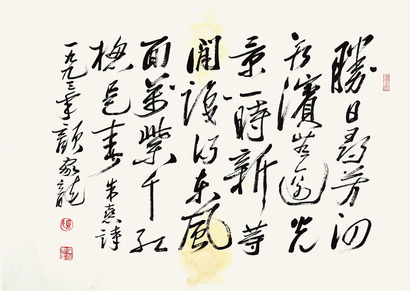 勝日尋芳泗
水濱無邊光
景一時新等
閒識得東風
面萬紫千紅
總是春 朱熹詩
一九九三年 顏家龍